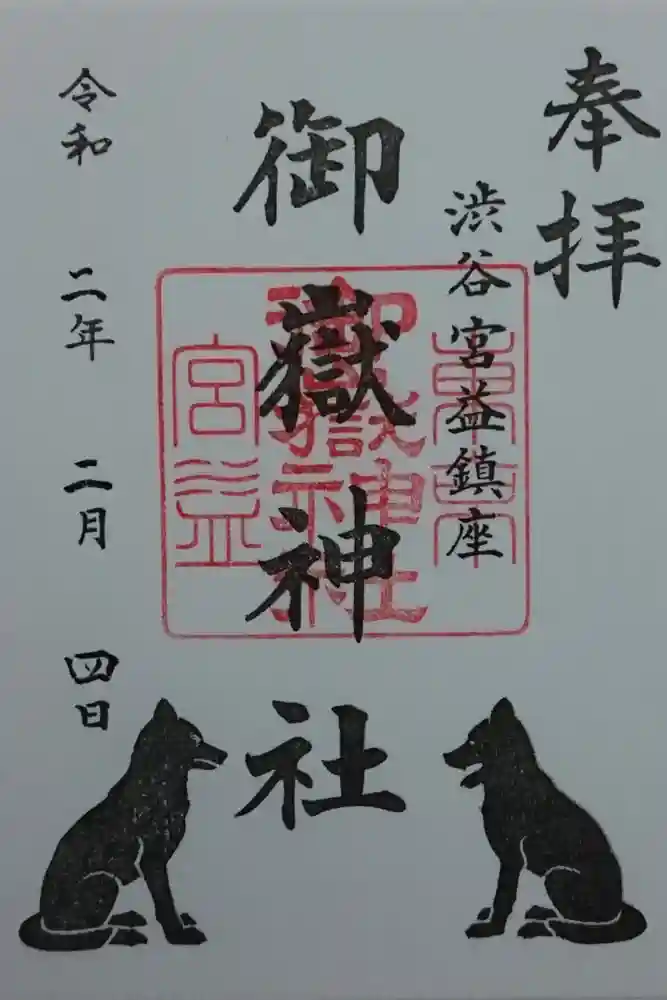 奉拝
渋谷宮益鎮座
御嶽神社
令和 二年 二月 四日
東京
御嶽神社
宮益